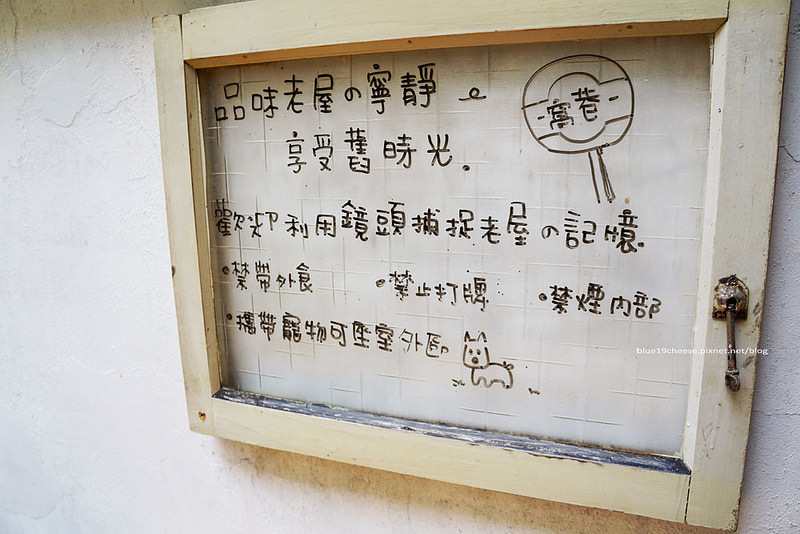 品味老屋の寧靜
享受舊時光.
窩巷
歡迎利用鏡頭捕捉老屋の記憶.
•禁帶外食 •禁止打牌 •禁煙內部
•攜帶寵物可坐室外區。
blue19cheese.pixnet.net/blog